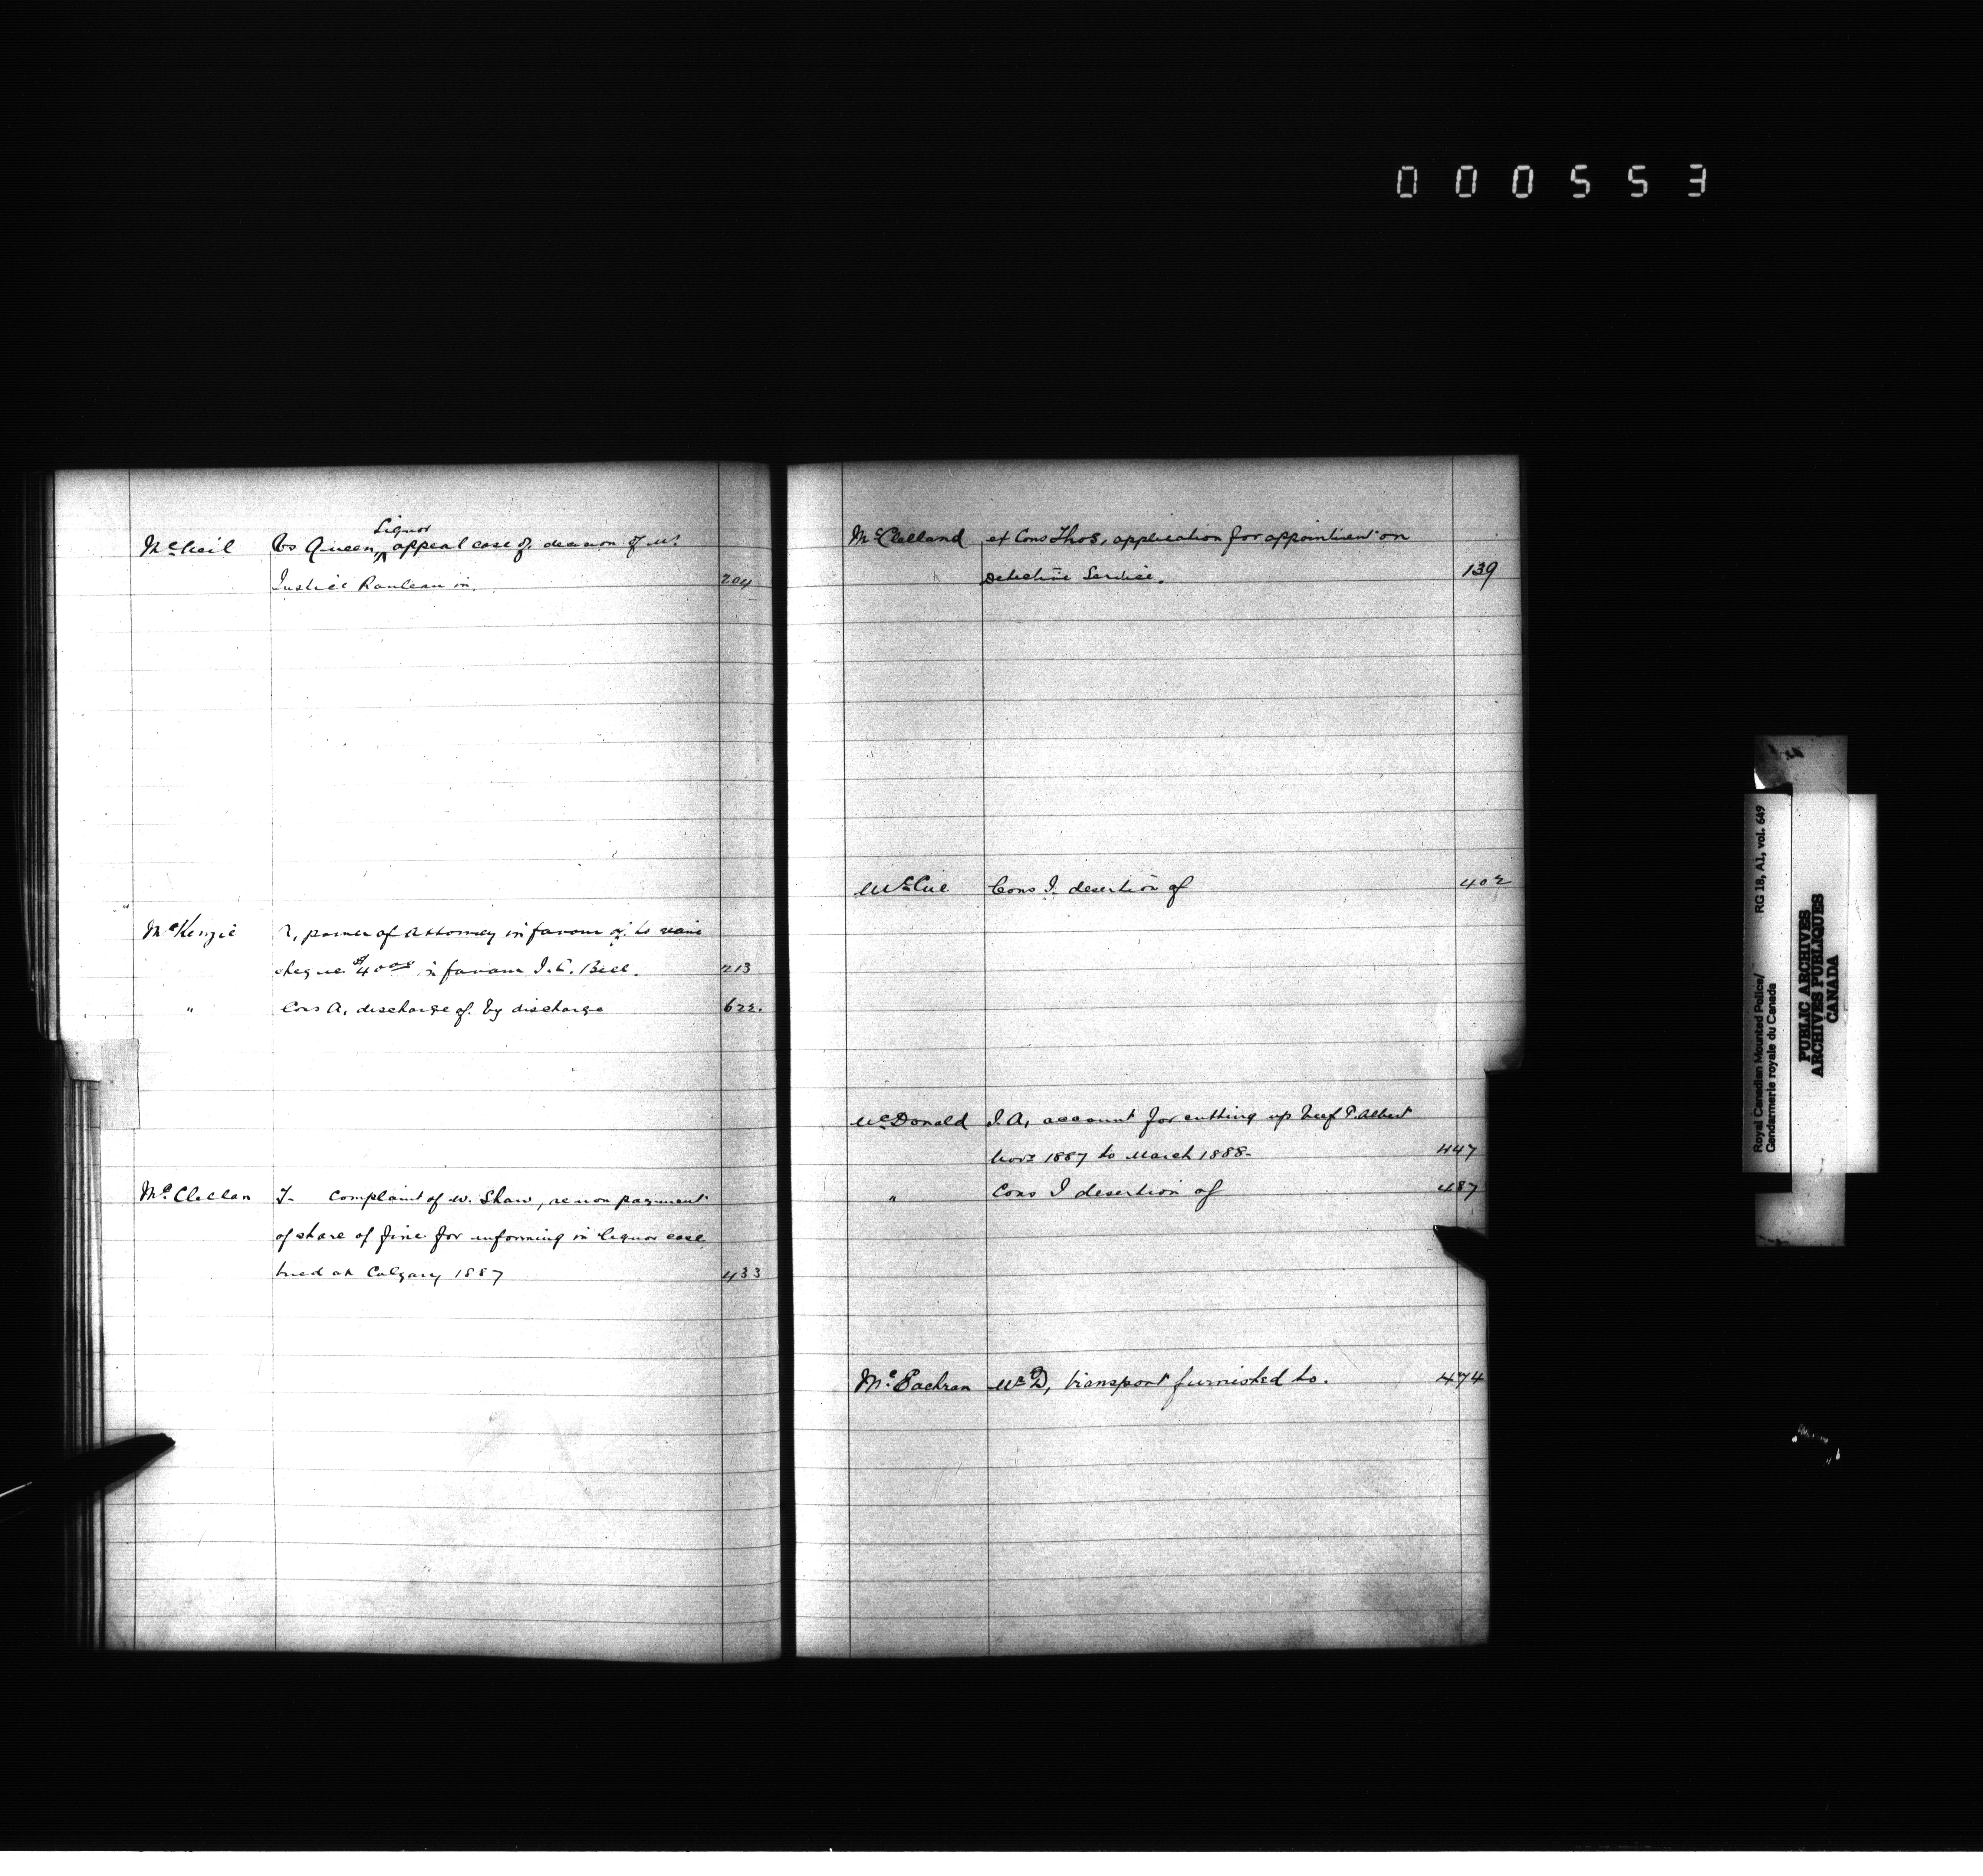 000553
McNeil Vs Queen, Liquor appeal case of, decision of Mr.
Justice Rouleau in. 204
McKenzie R, power of Attorney in favour of, to
cheque $40.00 in favour J. C. Bell. 213
" Cons A, discharge of by discharge 622.
McClellan J- Complaint of W. Shaw, re non payment
of share of fine for informing in liquor case
tried at Calgary 1887 433
McClelland ex Cons Thos, application for appointment on
Detective Service. 139
McCue Cons J. desertion of 402
McDonald J. A, account for cutting up beef P. Albert
Nov. 1887 to March 1888- 447
" Cons J desertion of 487
McEachran Mr D, transport furnished to. 474
Royal Canadian Mounted Police/
Gendarmerie royale du Canada
RG 18, A1, vol. 649
PUBLIC ARCHIVES
ARCHIVES PUBLIQUES
CANADA